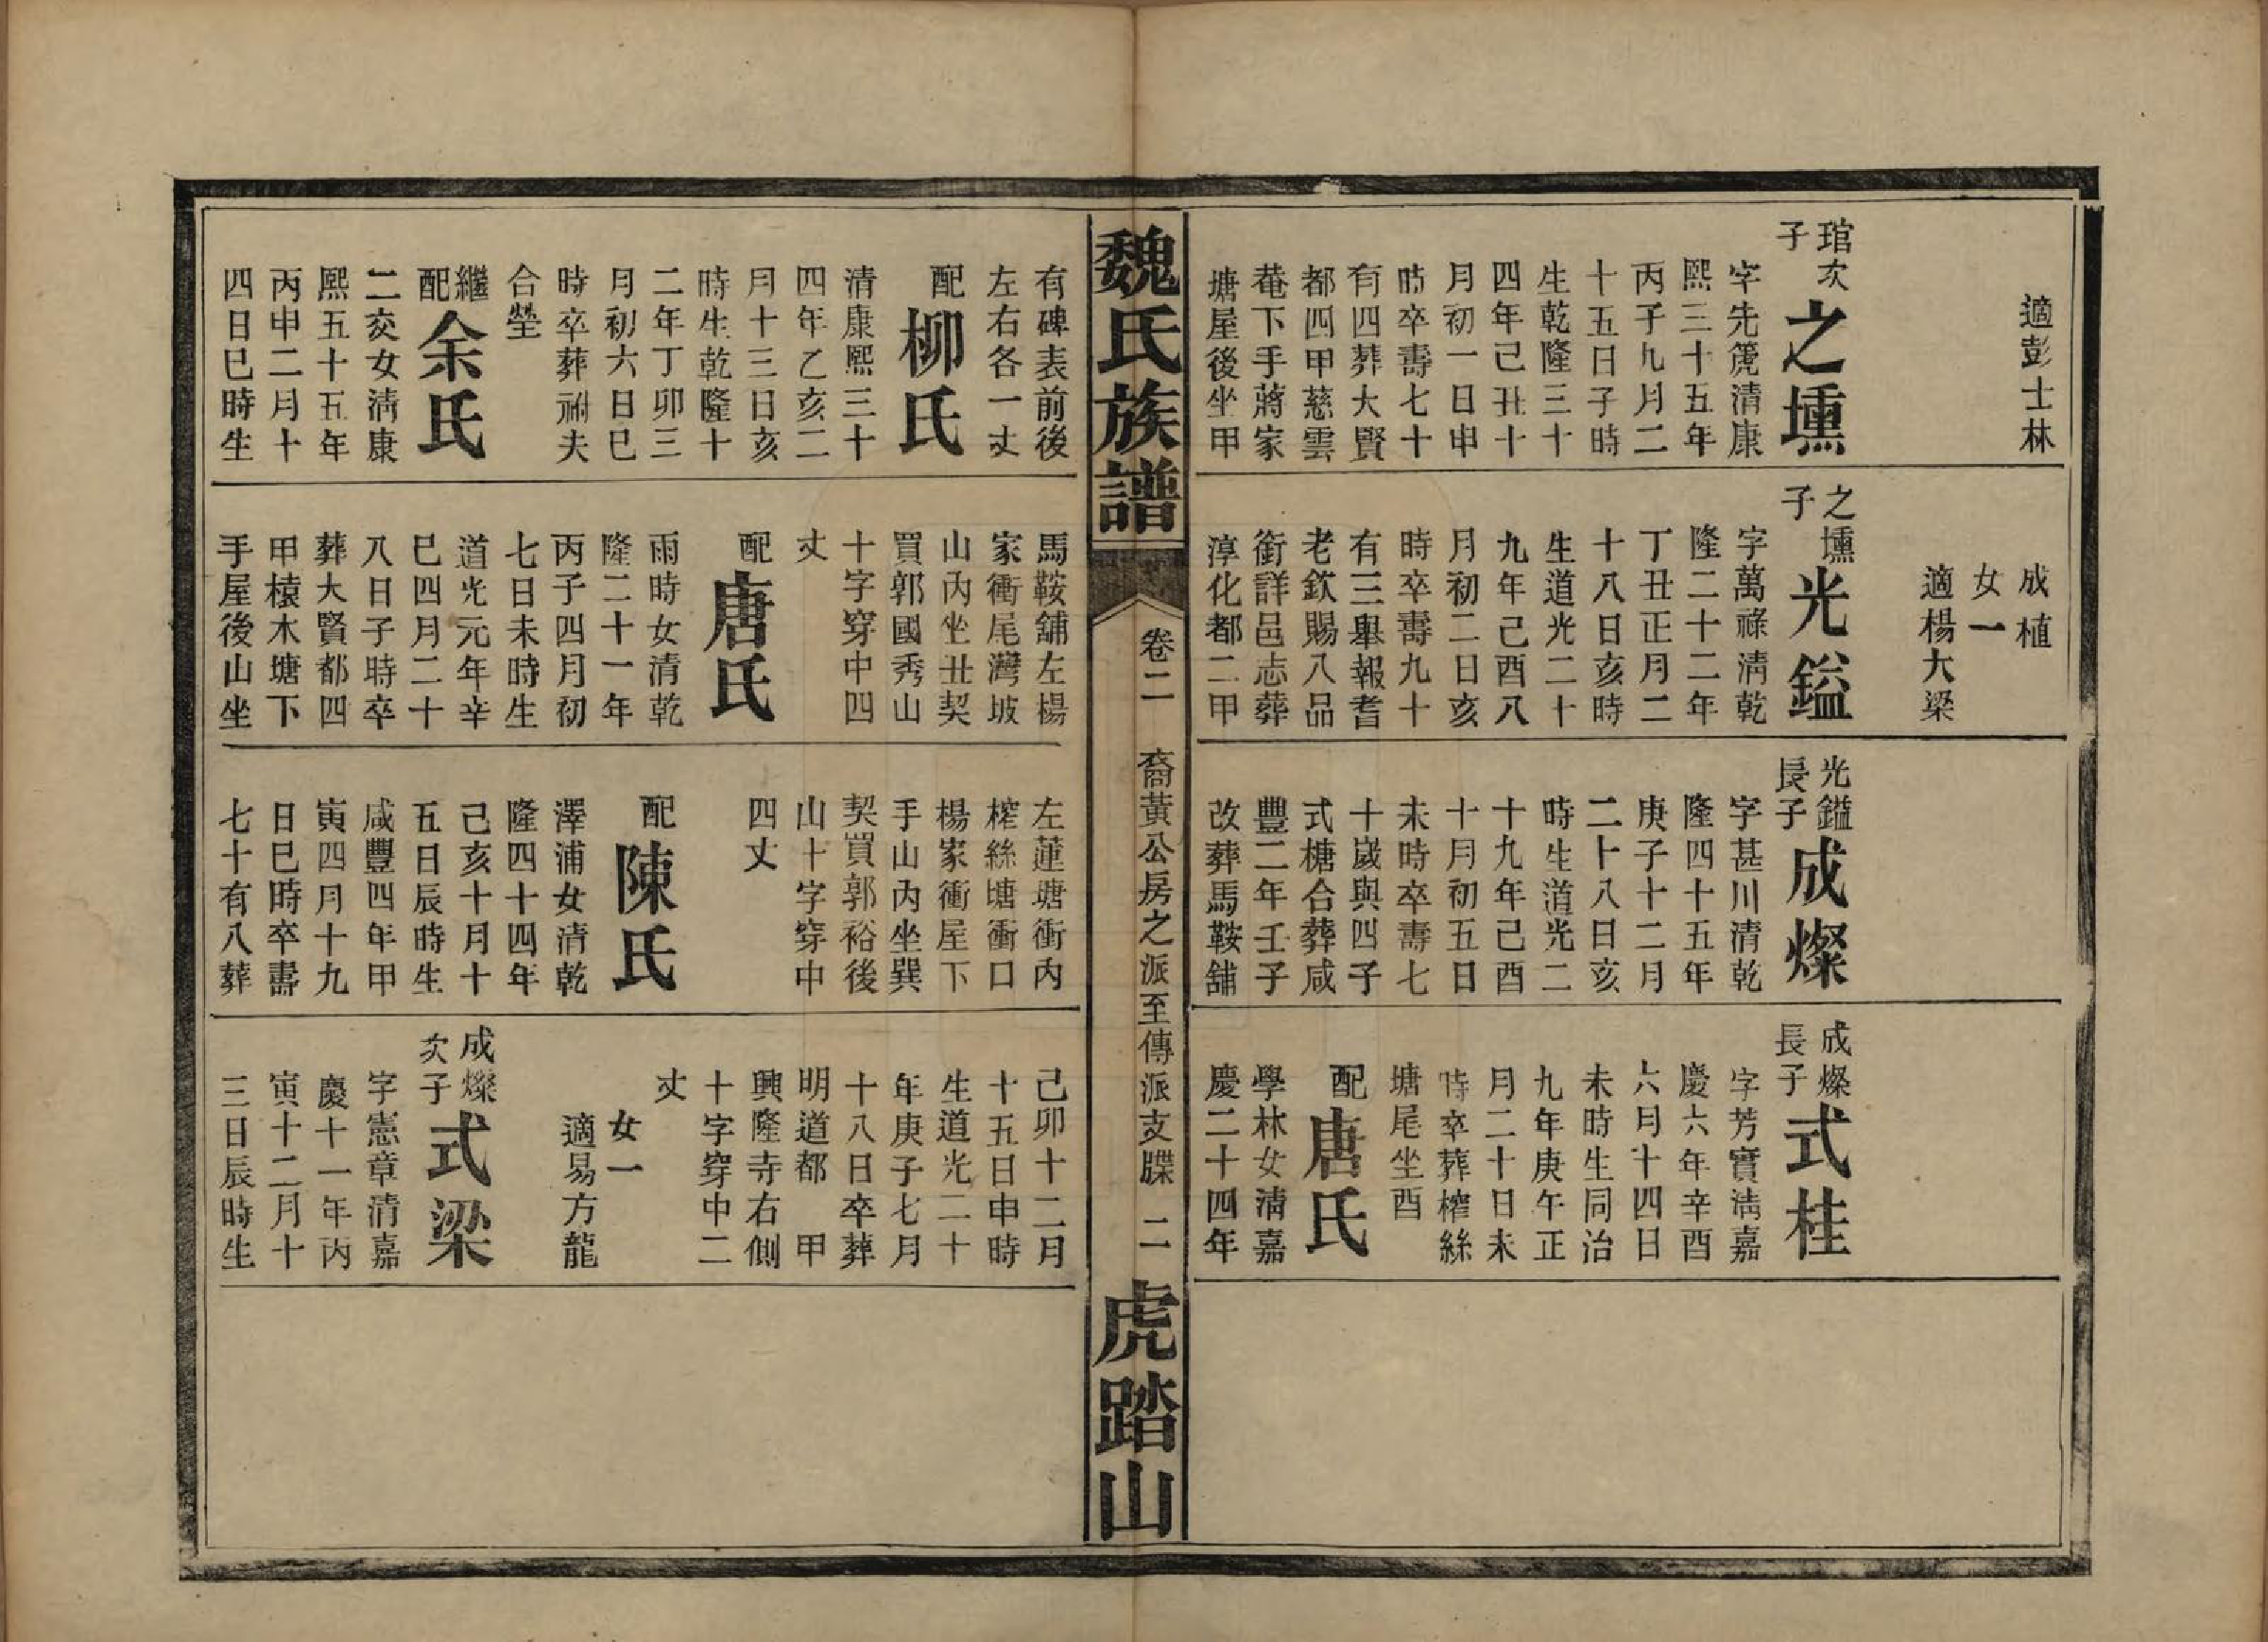 適彭士林
琯次
子
之壎
字先篪清康
熙三十五年
丙子九月二
十五日子時
生乾隆三十
四年己丑十
月初一日申
時卒壽七十
有四葬大賢
都四甲慈雲
菴下手蔣家
塘屋後坐甲
成植
女一
適楊大梁
之壎
子
光鎰
字萬祿清乾
隆二十二年
丁丑正月二
十八日亥時
生道光二十
九年己酉八
月初二日亥
時卒壽九十
有三舉報耆
老欽賜八品
銜詳邑志葬
淳化都二甲
光鎰
長子
成燦
字甚川清乾
隆四十五年
庚子十二月
二十八日亥
時生道光二
十九年己酉
十月初五日
未時卒壽七
十歲與四子
式榶合葬咸
豐二年壬子
改葬馬鞍舖
成燦
長子
式桂
字芳實清嘉
慶六年辛酉
六月十四日
未時生同治
九年庚午正
月二十日未
時卒葬榨絲
塘尾坐酉
配
唐氏
學林女清嘉
慶二十四年
魏氏族譜
卷二
裔黃公房之派至傳派支牒
二
虎踏山
有碑表前後
左右各一丈
配
柳氏
清康熙三十
四年乙亥二
月十三日亥
時生乾隆十
二年丁卯三
月初六日巳
時卒葬祔夫
合塋
繼
配
余氏
二交女清康
熙五十五年
丙申二月十
四日巳時生
馬鞍舖左楊
家衝尾灣坡
山內坐丑契
買郭國秀山
十字穿中四
丈
配
唐氏
雨時女清乾
隆二十一年
丙子四月初
七日未時生
道光元年辛
巳四月二十
八日子時卒
葬大賢都四
甲檺木塘下
手屋後山坐
左蓮塘衝內
榨絲塘衝口
楊家衝屋下
手山內坐巽
契買郭裕後
山十字穿中
四丈
配
陳氏
澤浦女清乾
隆四十四年
己亥十月十
五日辰時生
咸豐四年甲
寅四月十九
日巳時卒壽
七十有八葬
己卯十二月
十五日申時
生道光二十
年庚子七月
十八日卒葬
明道都　甲
興隆寺右側
十字穿中二
丈
女一
適易方龍
成燦
次子
式梁
字憲章清嘉
慶十一年丙
寅十二月十
三日辰時生